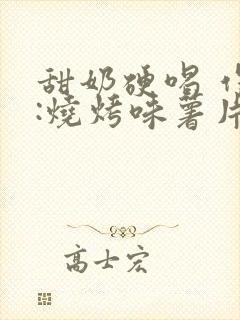 甜奶硬唱
:燒烤味薯片
高士宏